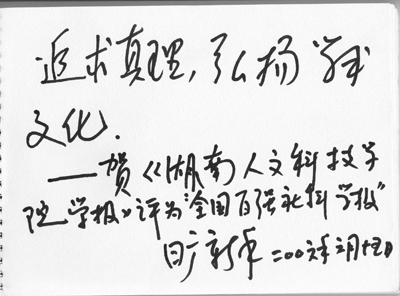 追求真理,弘扬学术
文化.
——贺《湖南人文科技学
院学报》评为“全国百强社科学报”
旷新年 二00六年